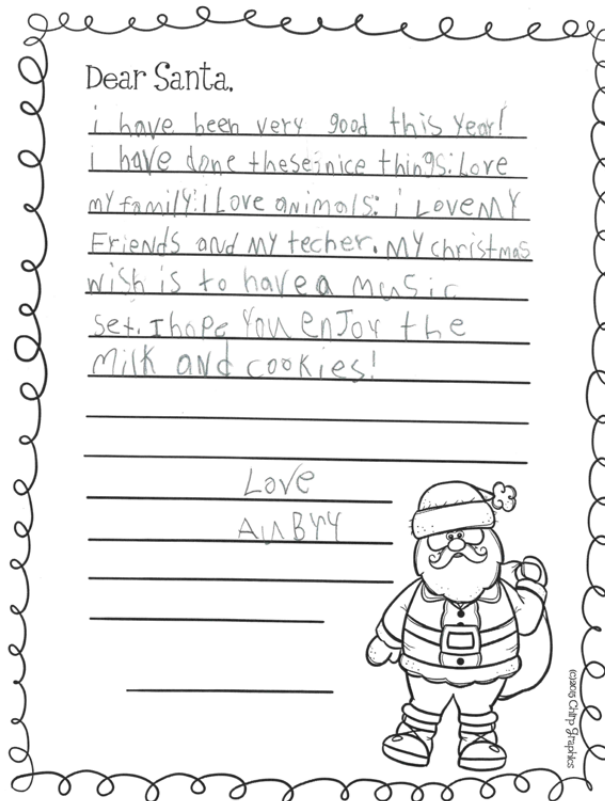 Dear Santa,
i have been very good this year!
i have done these:nice things:Love
my family:i Love animals: i LoveMY
Friends and MY techer. MY christmas
wish is to have a music
set. I hope You enJoy the
Milk and cookies!
Love
AuBry
(c)2015 Chirp Graphics